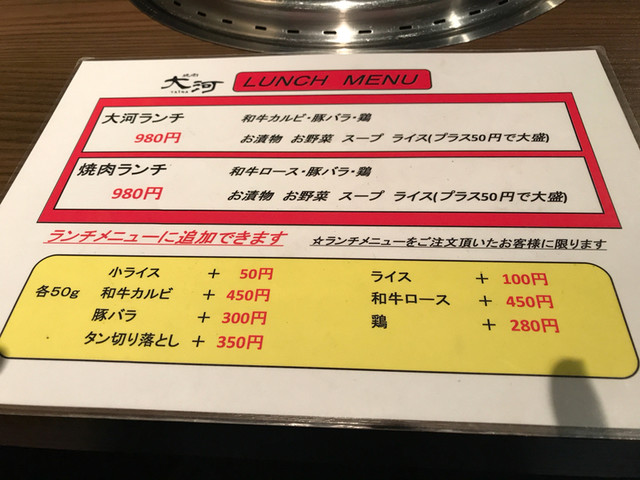 焼肉
大河 LUNCH MENU
TAIGA
大河ランチ 和牛カルビ・豚バラ・鶏
980円 お漬物 お野菜 スープ ライス(プラス50円で大盛)
焼肉ランチ 和牛ロース・豚バラ・鶏
980円 お漬物 お野菜 スープ ライス(プラス50円で大盛)
ランチメニューに追加できます ☆ランチメニューをご注文頂いたお客様に限ります
小ライス + 50円 ライス + 100円
各50g 和牛カルビ + 450円 和牛ロース + 450円
豚バラ + 300円 鶏 + 280円
タン切り落とし + 350円